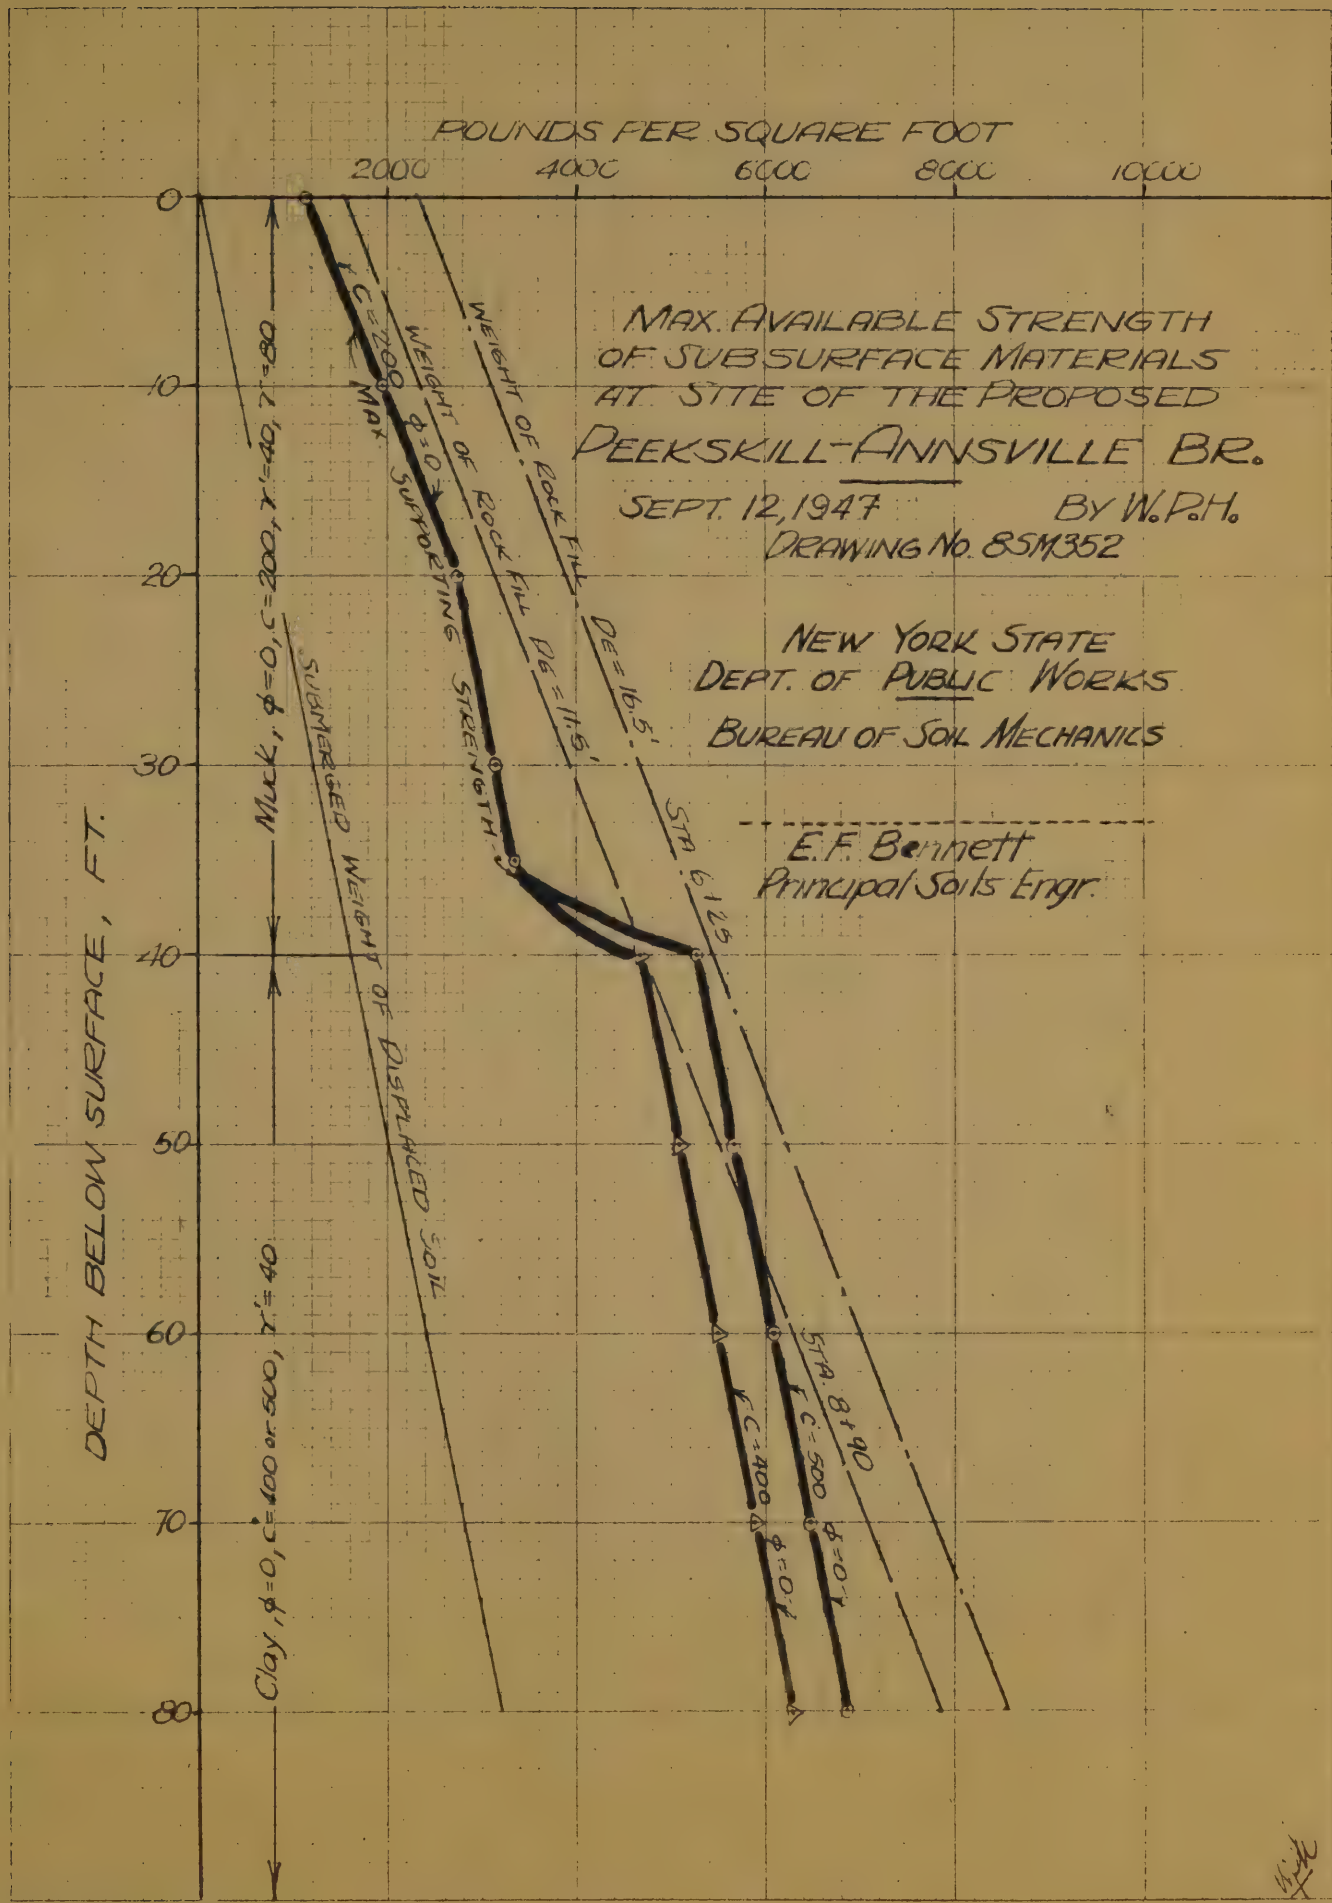 POUNDS PER SQUARE FOOT
2000 4000 6000 8000 10000
0
10
20
30
40
50
60
70
80
DEPTH BELOW SURFACE, FT.
MAX. AVAILABLE STRENGTH
OF SUBSURFACE MATERIALS
AT SITE OF THE PROPOSED
PEEKSKILL-ANNSVILLE BR.
SEPT. 12, 1947 BY W.P.H.
DRAWING No. 8SM352
NEW YORK STATE
DEPT. OF PUBLIC WORKS
BUREAU OF SOIL MECHANICS
E.F. Bennett
Principal Soils Engr.
Muck, φ=0, c=200, r'=40, r=80
Clay, φ=0, c=400 or 500, r'=40
SUBMERGED WEIGHT OF DISPLACED SOIL
C=200 φ=0
MAX SUPPORTING STRENGTH
WEIGHT OF ROCK FILL DE=11.5' STA. 8+90
WEIGHT OF ROCK FILL DE=16.5' STA 6+25
C=400 φ=0
C=500 φ=0